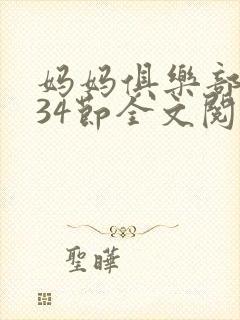 妈妈俱樂部
34節全文閱
聖曄